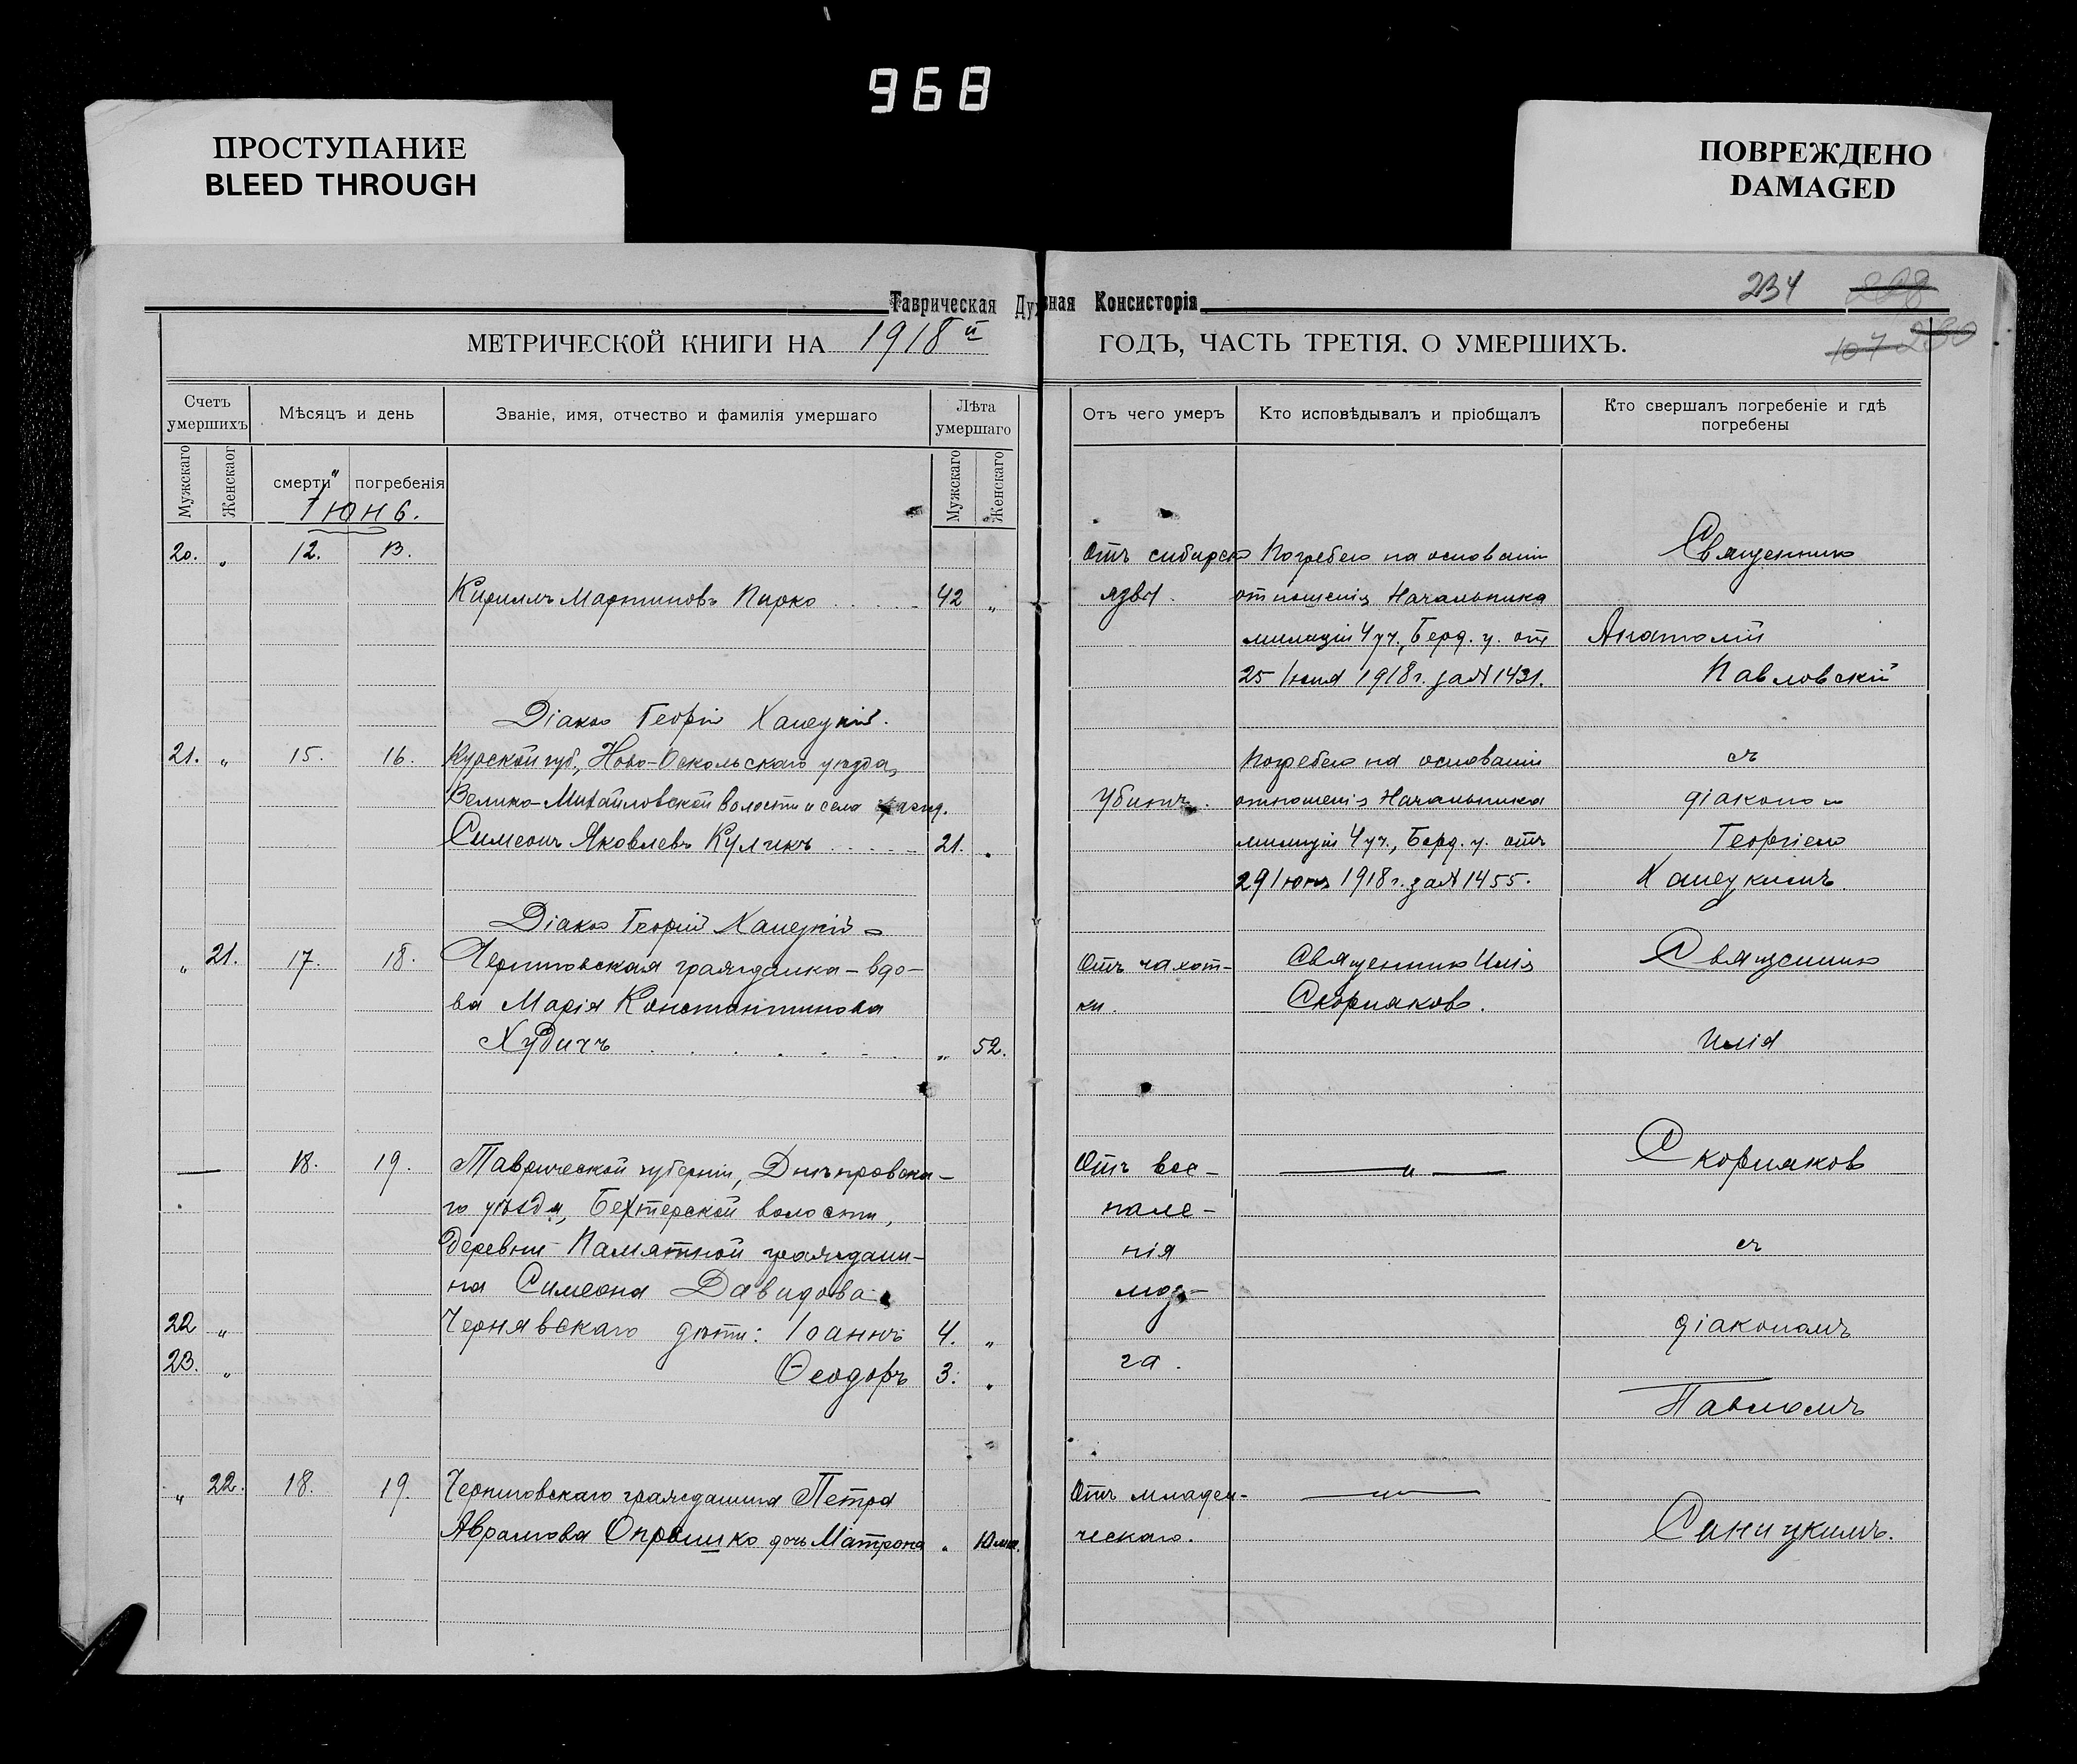 968
ПРОСТУПАНИЕ
BLEED THROUGH
ПОВРЕЖДЕНО
DAMAGED
234 228
107 230
Таврическая Духовная Консисторія
МЕТРИЧЕСКОЙ КНИГИ НА 1918й ГОДЪ, ЧАСТЬ ТРЕТІЯ, О УМЕРШИХЪ.
Счетъ умершихъ
Мѣсяцъ и день
Званіе, имя, отчество и фамилія умершаго
Лѣта умершаго
Отъ чего умеръ
Кто исповѣдывалъ и пріобщалъ
Кто свершалъ погребеніе и гдѣ погребены
Мужскаго
Женскаго
смерти
погребенія
Мужскаго
Женскаго
Іюнь.
20. „ 12. 13.
Кириллъ Мартиновъ Пирко 42 „
Отъ сибирск
язвы.
Погребенъ на основаніи
отношенія Начальника
милиціи 4 уч., Берд. у. отъ
25 Іюня 1918 г. за № 1431.
Священникъ
Анатолій
Павловскій
Діаконъ Георгій Ханецкій.
21. „ 15. 16.
Курской губ., Ново-Оскольскаго уѣзда,
Велико-Михайловской волости и села гражд.
Симеонъ Яковлевъ Куликъ 21. „
Убитъ.
Погребенъ на основаніи
отношенія Начальника
милиціи 4 уч., Берд. у. отъ
29 Іюня 1918 г. за № 1455.
съ
діаконом
Георгіемъ
Ханецкимъ.
Діаконъ Георгій Ханецкій
„ 21. 17. 18.
Черниговская гражданка - вдо-
ва Марія Константинова
Худичъ „ 52.
Отъ чахот-
ки.
Священникъ Илія
Скорняковъ.
Священникъ
Илія
Скорняковъ
18. 19.
Таврической губерніи, Днѣпровска-
го уѣзда, Бехтерской волости,
деревни Памятной граждани-
на Симеона Давидова
22 „ Чернявскаго дѣти: Іоаннъ 4. „
23. „ Ѳеодоръ 3. „
Отъ вос-
пале-
нія
моз-
га.
— „ —
съ
діакономъ
Павломъ
Синицкимъ.
„ 22. 18. 19.
Черниговскаго гражданина Петра
Аврамова Опрышко дочь Матрона „ 10 мѣс.
Отъ младен-
ческаго.
— „ —